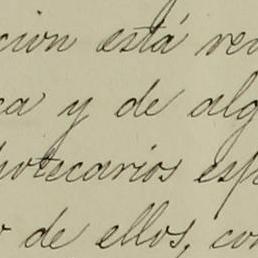 cion está ve
ca y de alg
potecarios esp
o de ellos, con